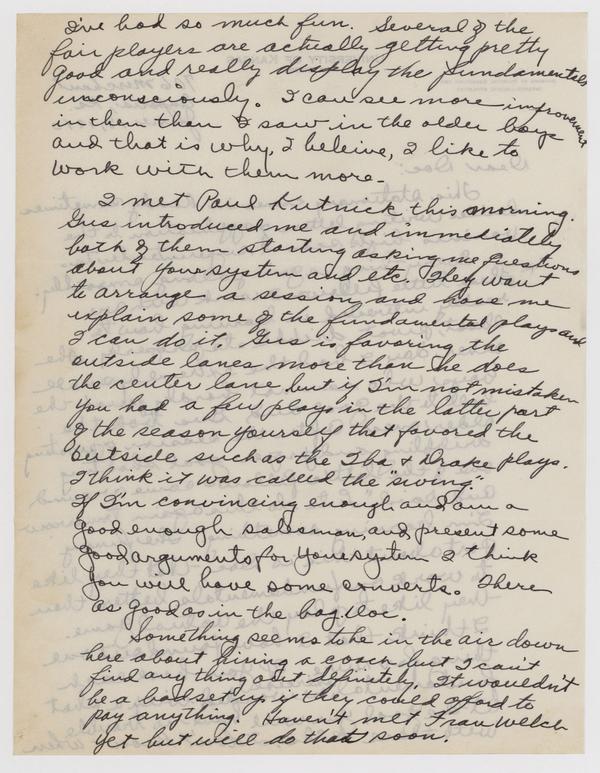 I've had so much fun. Several of the
fair players are actually getting pretty
good and really display the fundamentals
unconsciously. I can see more improvement
in them than I saw in the older boys
and that is why, I beleive, I like to
work with them more.
I met Paul Kutnick this morning.
Gus introduced me and immediately
both of them starting asking me questions
about your system and etc. They want
to arrange a session and have me
explain some of the fundamental plays and
I can do it. Gus is favoring the
outside lanes more than he does
the center lane but if I'm not mistaken
you had a few plays in the latter part
of the season yourself that favored the
outside such as the Iba & Drake plays.
I think it was called the "swing."
If I'm convincing enough and am a
good enough salesman, and present some
good arguments for your system I think
you will have some converts. There
as good as in the bag. Doc.
Something seems to be in the air down
here about hiring a coach but I can't
find any thing out definitely. It wouldn't
be a bad set up if they could afford to
pay anything. Haven't met Fran Welch
yet but will do that soon.